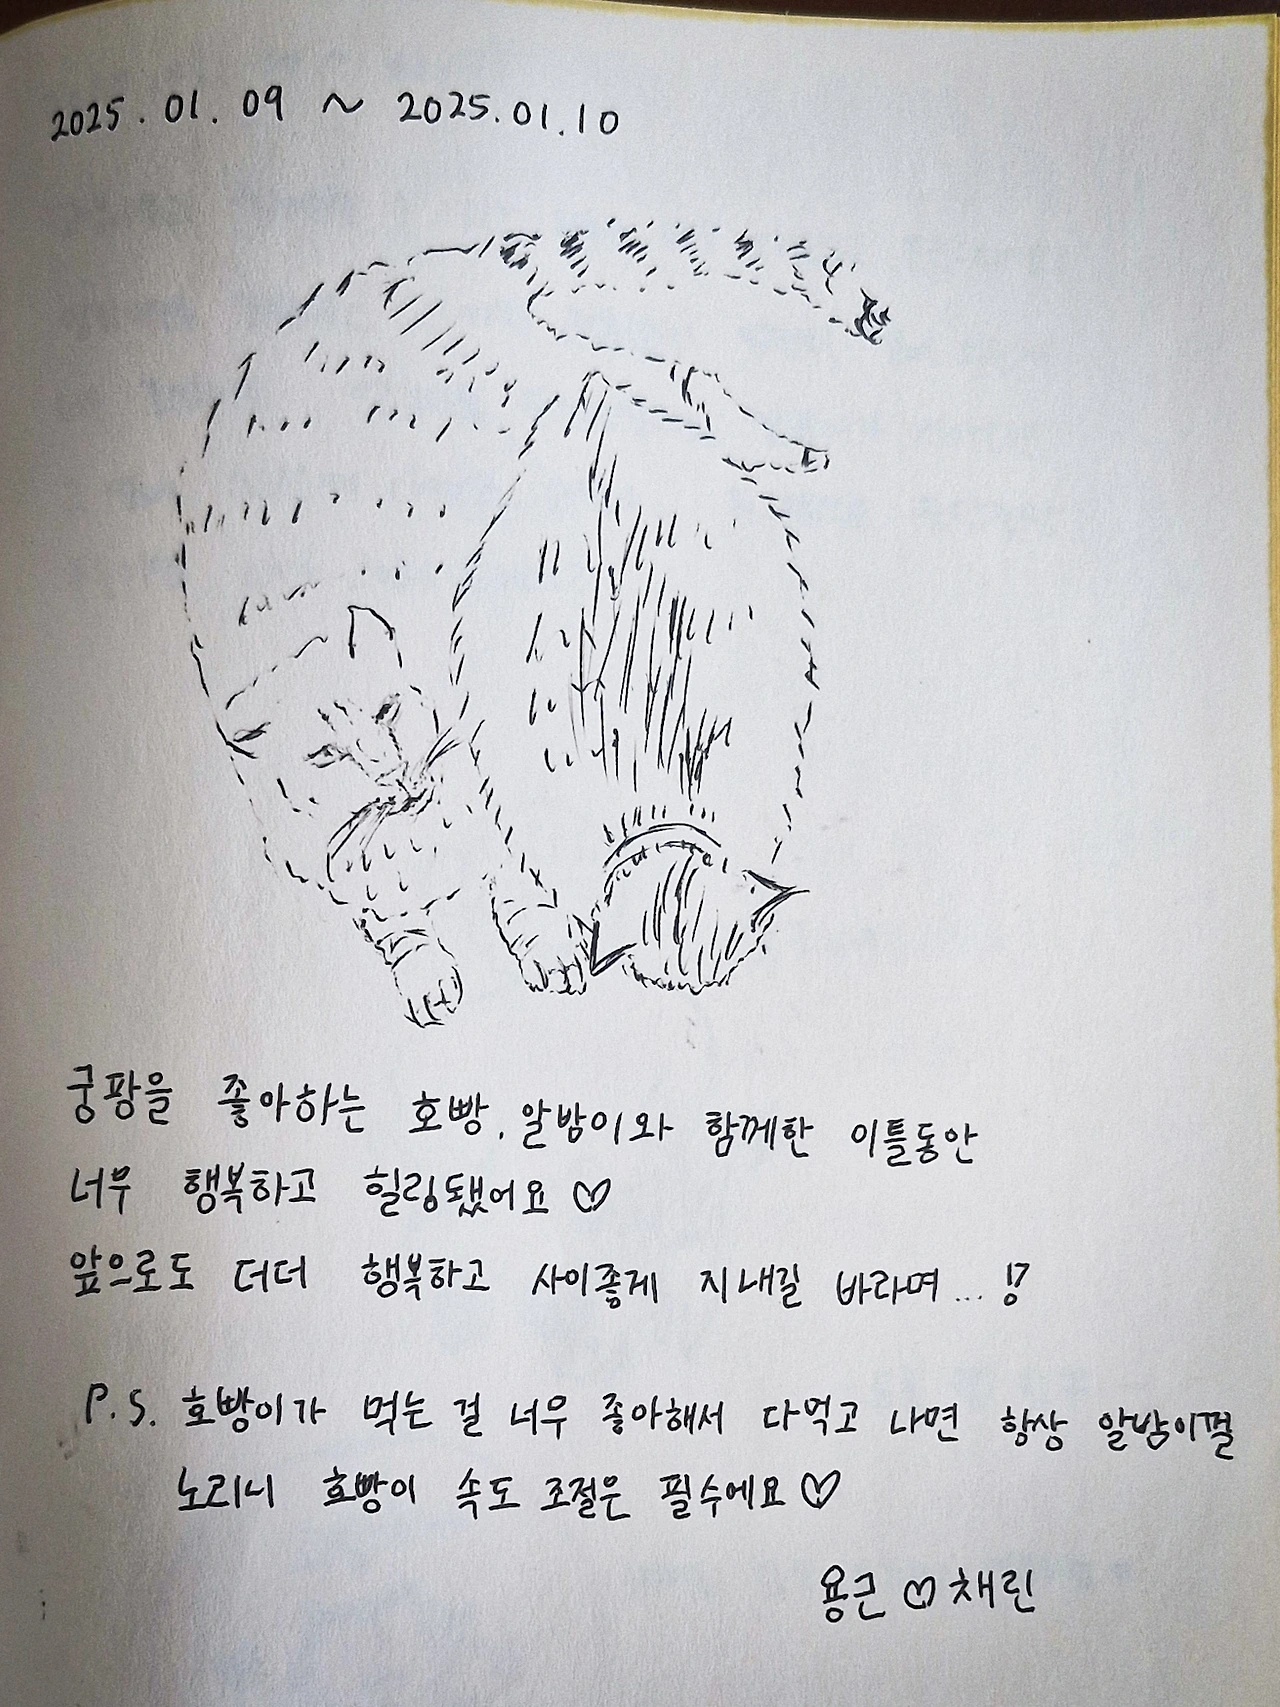 2025.01.09 ~ 2025.01.10
궁팡을 좋아하는 호빵, 알밤이와 함께한 이틀동안
너무 행복하고 힐링됐어요 ♡
앞으로도 더더 행복하고 사이좋게 지내길 바라며... !?
P.S. 호빵이가 먹는 걸 너무 좋아해서 다먹고 나면 항상 알밤이껄
노리니 호빵이 속도 조절은 필수에요 ♡
용근 ♡ 채린